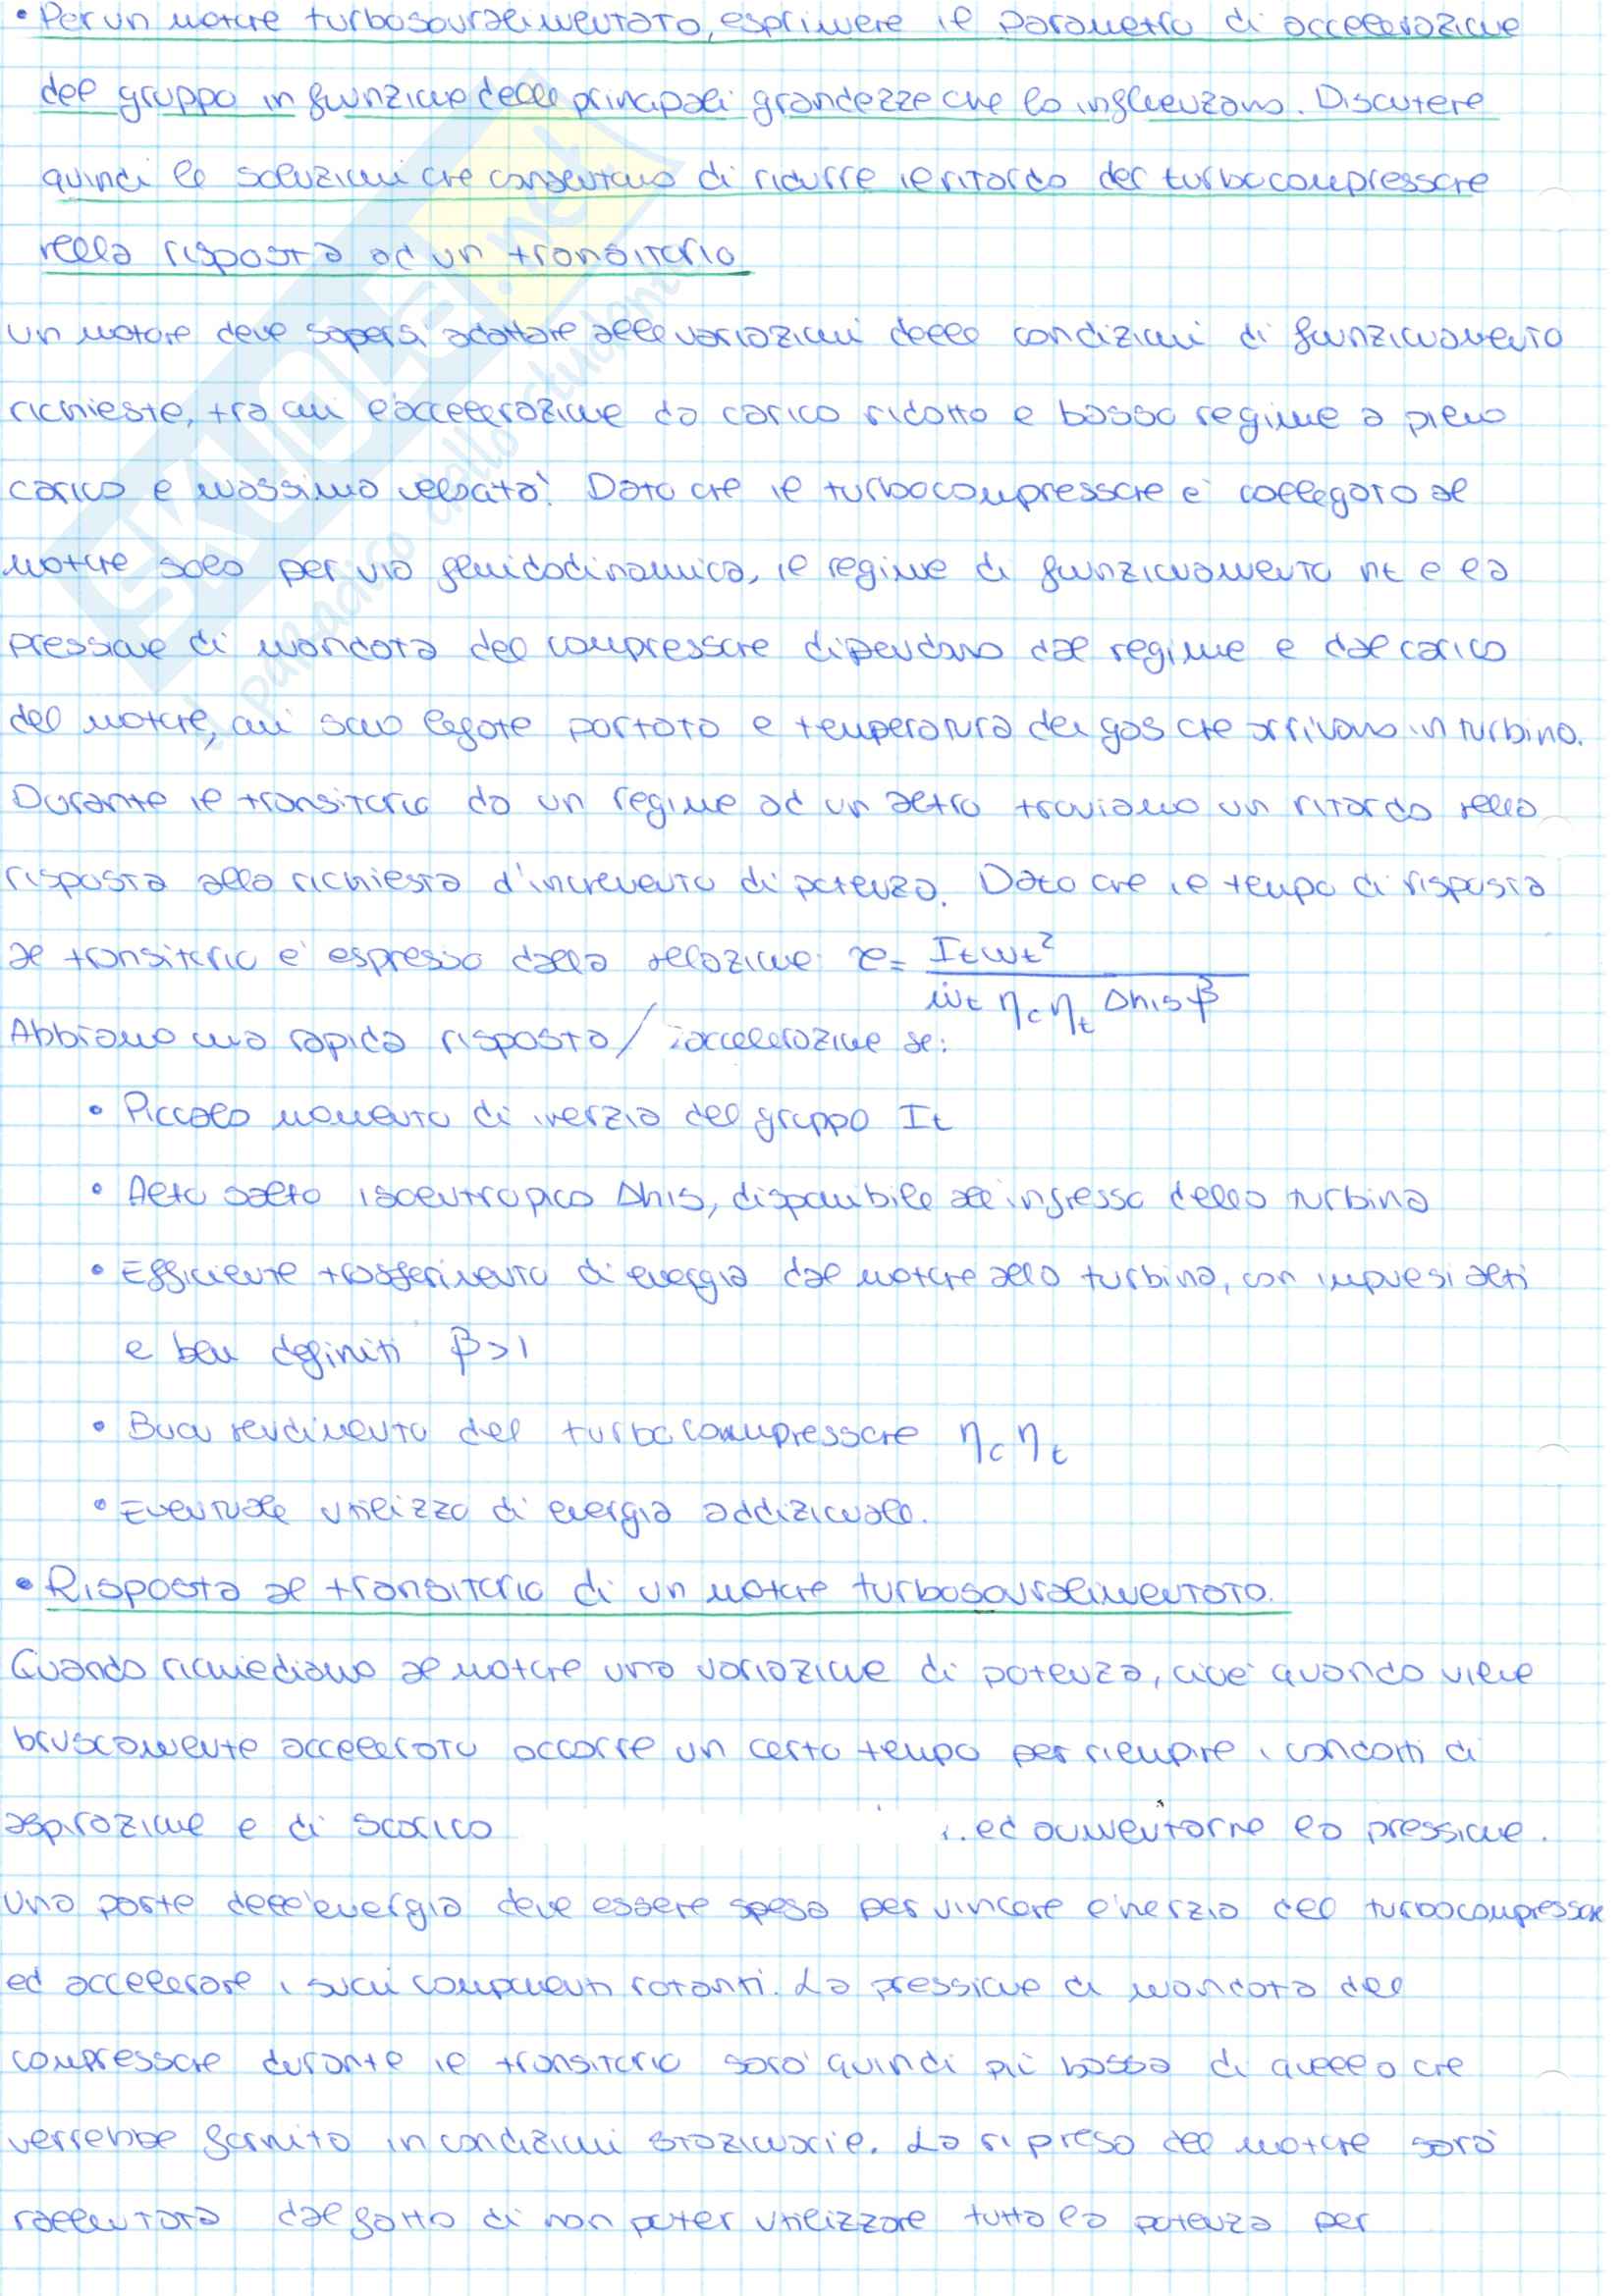 • Per un motore turbosovralimentato, esprimere il parametro di accelerazione
del gruppo in funzione delle principali grandezze che lo influenzano. Discutere
quindi le soluzioni che consentano di ridurre il ritardo del turbocompressore
nella risposta ad un transitorio
Un motore deve sapersi adattare alle variazioni delle condizioni di funzionamento
richieste, tra cui l'accelerazione da carico ridotto e basso regime a pieno
carico e massima velocità. Dato che il turbocompressore è collegato al
motore solo per via fluidodinamica, il regime di funzionamento nt e la
pressione di mandata del compressore dipendano dal regime e dal carico
del motore, cui sono legate portata e temperatura dei gas che arrivano in turbina.
Durante il transitorio da un regime ad un altro troviamo un ritardo nella
risposta alla richiesta d'incremento di potenza. Dato che il tempo di risposta
al transitorio è espresso dalla relazione: τ = It ωt² / ṁt ηc ηt Δhis β
Abbiamo una rapida risposta/accelerazione se:
• Piccolo momento di inerzia del gruppo It
• Alto salto isoentropico Δhis, disponibile all'ingresso della turbina
• Efficiente trasferimento di energia dal motore alla turbina, con impulsi alti
e ben definiti β>1
• Buon rendimento del turbocompressore ηc ηt
• Eventuale utilizzo di energia addizionale.
• Risposta al transitorio di un motore turbosovralimentato.
Quando richiediamo al motore una variazione di potenza, cioè quando viene
bruscamente accelerato occorre un certo tempo per riempire i condotti di
aspirazione e di scarico ed aumentarne la pressione.
Una parte dell'energia deve essere spesa per vincere l'inerzia del turbocompressore
ed accelerare i suoi componenti rotanti. La pressione di mandata del
compressore durante il transitorio sarà quindi più bassa di quella che
verrebbe fornita in condizioni stazionarie. La ripresa del motore sarà
rallentata dal fatto di non poter utilizzare tutta la potenza per
SKUOLA.net
il paradiso dello studente